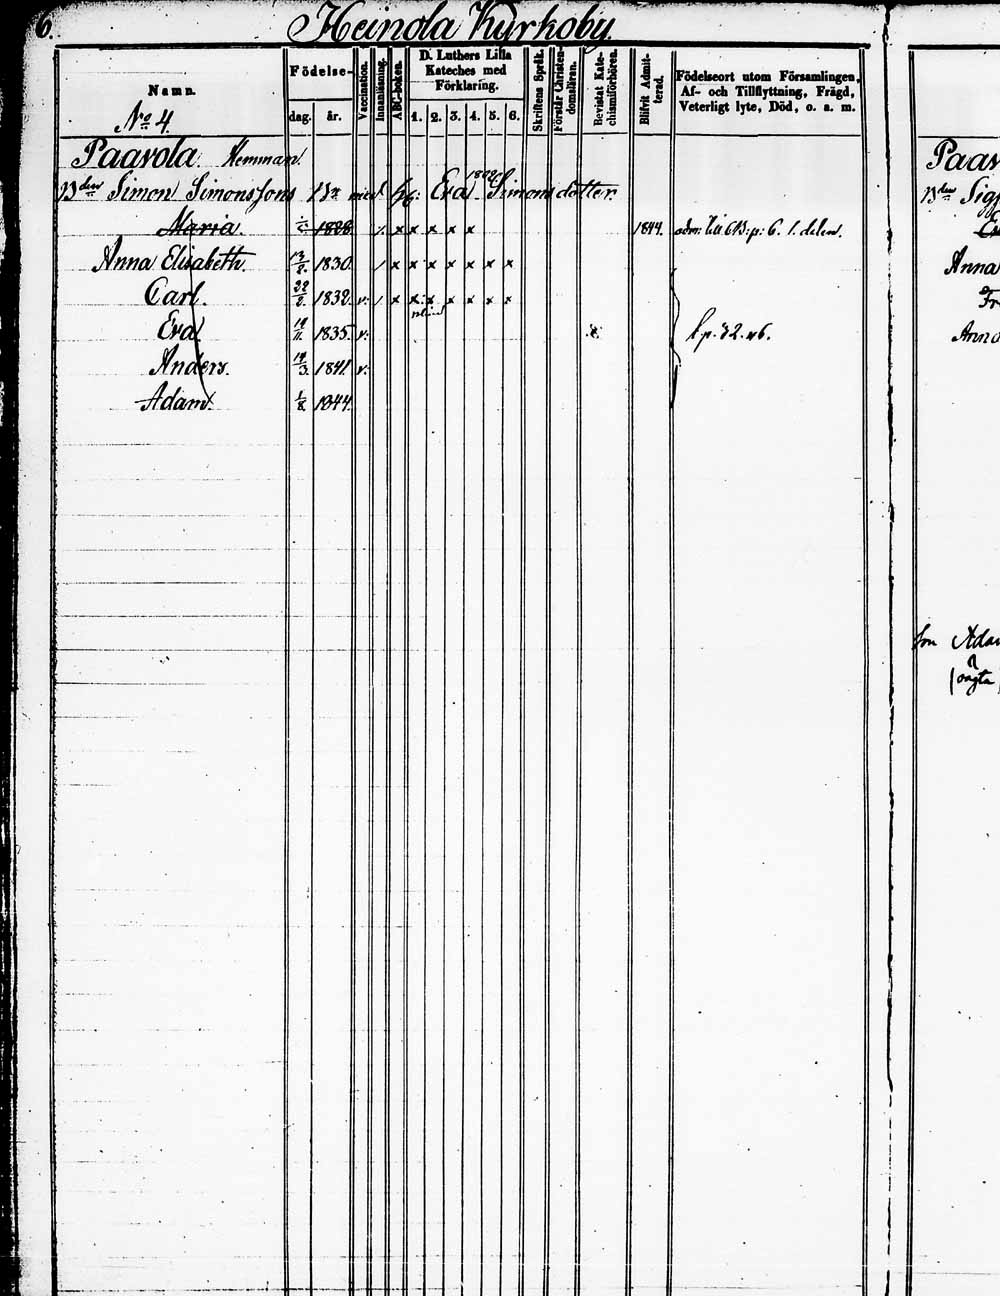 6. Heinola Kyrkoby.
Namn.
No 4.
Födelse-
dag. år.
Vaccination.
Innanläsning.
ABC-boken.
D. Luthers Lilla
Kateches med
Förklaring.
1. 2. 3. 4. 5. 6.
Skriftens Språk.
Förstår Christen-
domsläran.
Bevistat Kate-
chismiförhören.
Blifvit Admit-
terad.
Födelseort utom Församlingen,
Af- och Tillflyttning, Frägd,
Veterligt lyte, Död, o. a. m.
Paavola. Hemman.
Bden Simon Simonssons Bn med Eva Simonsdotter.
Maria. 1828 / x x x x x 1844. adm: till p: 6. 1. delen.
Anna Elisabeth. 13/2. 1830. / x x x x x x x
Carl. 22/2. 1832. v: / x x x x x x x
Eva 19/11. 1835. v: x p. 32.
Anders. 19/3. 1841 v:
Adam. 1/8. 1844.
Paav
Bden
Anna
Anna
Son Adam
(oägta)